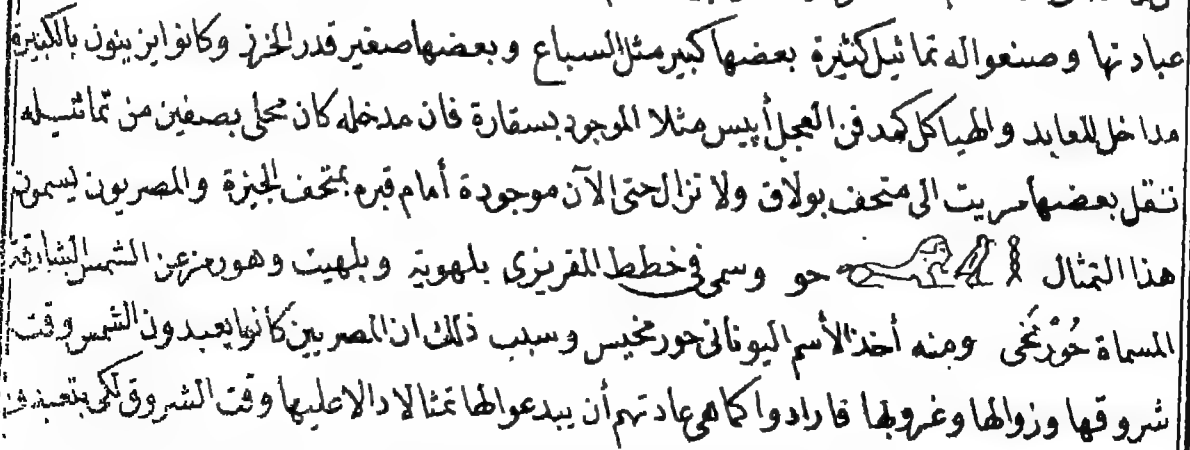 عبادتها وصنعوا له تماثيل كثيرة بعضها كبير مثل السباع وبعضها صغير قدر الخرز وكانوا يزينون بالكبيرة
مداخل المعابد والهياكل كمدفن العجل أبيس مثلا الموجود بسقارة فان مدخله كان محلى بصفين من تماثيله
نقل بعضها مريت الى متحف بولاق ولا تزال حتى الآن موجودة أمام قبره بمتحف الجيزة والمصريون يسمون
هذا التمثال حو وسمى فى خطط المقريزى بلهوية وبلهيت وهو رمز عن الشمس الشارقة
المسماة حُورْمَخِى ومنه أخذ الأسم اليونانى حورمخيس وسبب ذلك ان المصريين كانوا يعبدون الشمس وقت
شروقها وزوالها وغروبها فارادوا كما هى عادتهم أن يبدعوا لها تمثالا دالا عليها وقت الشروق لكى